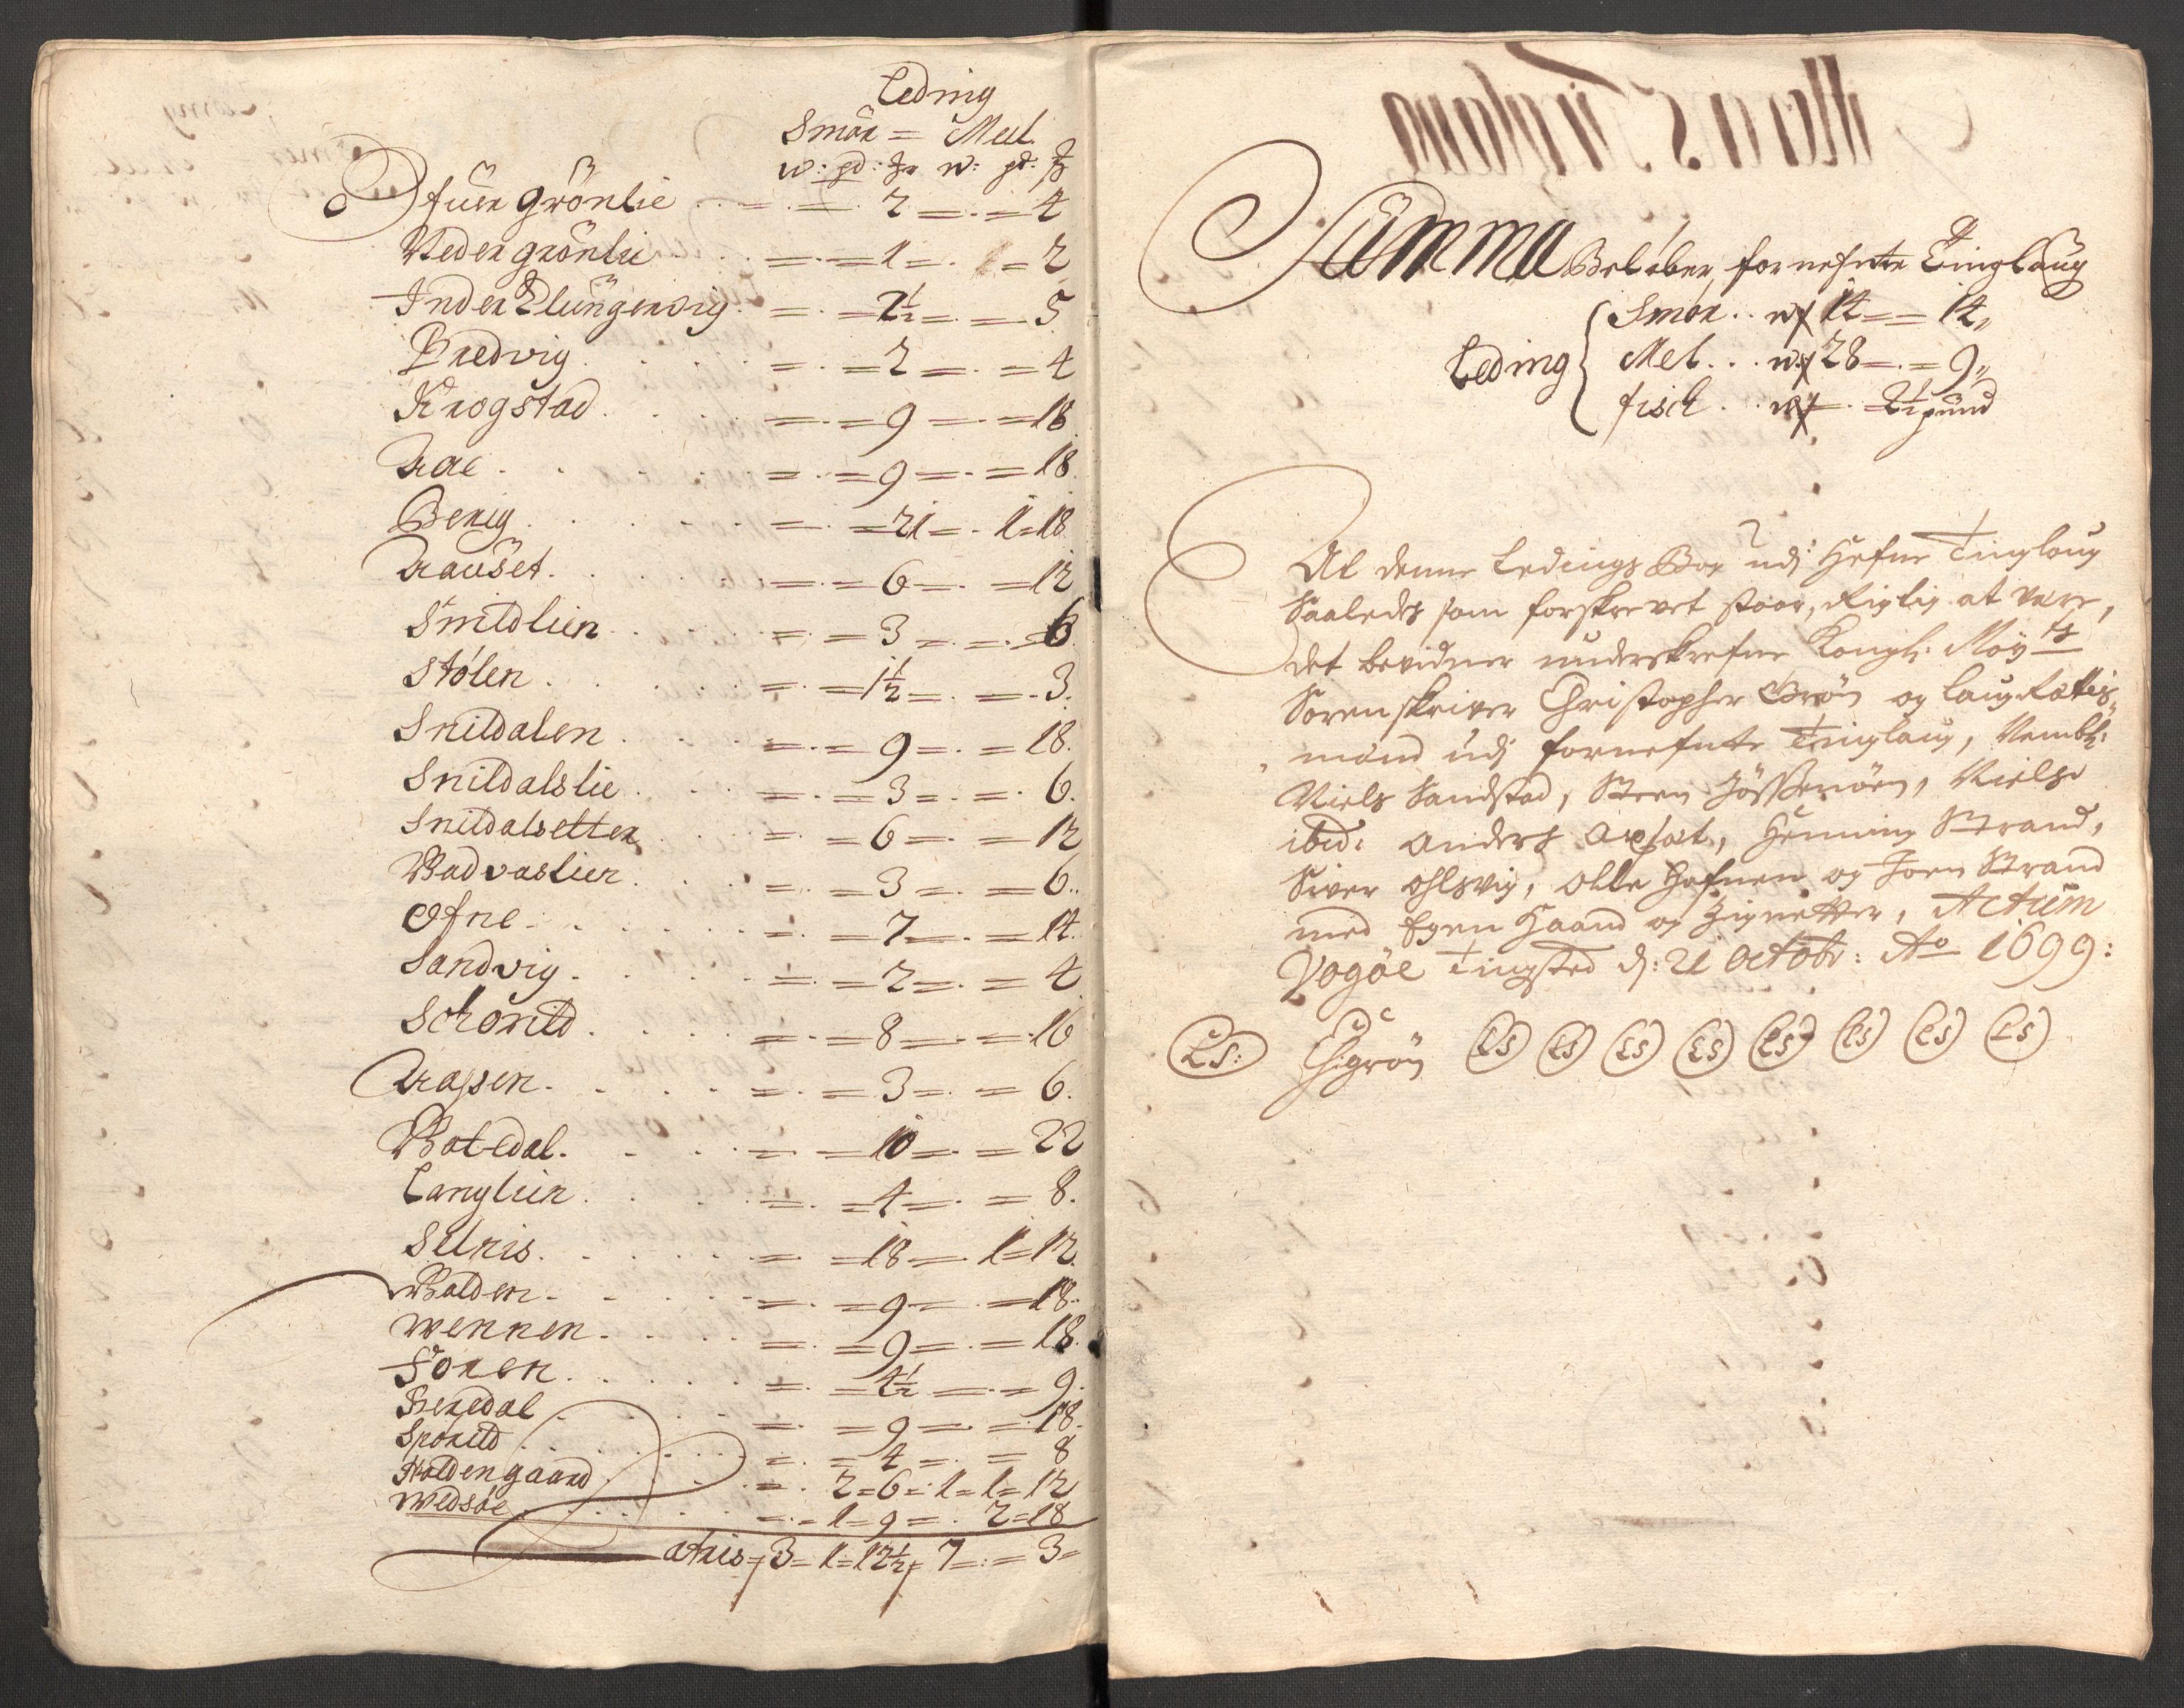 Leding
Smör = Meel
w: pd: ℔ w: pd: ℔
Ofuer Grönlie . . = . = 2 = . = 4
Neder grönlie . . = . = 1 = . = 2
Inder Elungervig . = . = 2½ = . = 5
Bredvig . . . = . = 2 = . = 4
Krogstad . . . = . = 9 = . = 18
Aae . . . = . = 9 = . = 18
Berig . . . = . = 21 = . 1 = 18
Aauset . . . = . = 6 = . = 12
Snildlien . . . = . = 3 = . = 6
Stölen . . . = . = 1½ = . = 3.
Snildalen . . . = . = 9 = . = 18.
Snildalslie . . . = . = 3 = . = 6.
Snildalsetter . . = . = 6 = . = 12
Vadvaslien . . . = . = 3 = . = 6.
Ofne . . . = . = 7 = . = 14.
Sandvig . . . = . = 2 = . = 4
Schonild . . . = . = 8 = . = 16
Aassen . . . = . = 3 = . = 6.
Batedal . . . = . = 10 = . = 22
Langlien . . . = . = 4 = . = 8.
Selnis . . . = . = 18 = . 1 = 12.
Balden . . . = . = 9 = . = 18.
Wennen . . . = . = 9 = . = 18.
Foren . . . = . = 4½ = . = 9.
Beredal . . . = . = 9 = . = 18.
Sponild . . . = . = 4 = . = 8
Holdengaard . . . = . 2 = 6 = 1 = 1 = 12
Wedsöe . . . = . 1 = 9 = . 2 = 18
Latris = 3 = 1 = 12½ = 7 = . = 3 =
Summa Belöber fornefnte Tinglaug
Smör . . w 14 = = 14,
Leding Mel . . w 28 = . = 9,,
fisch . . w = . 2½ pund
At denne Ledings Bog udj Hefne Tinglaug
Saaledis som forskrevet staar, Rigtig at vere,
det bevidner underskrefne Kongl: May:ts
Sorenskriver Christopher Grön og laugRettis,,
mænd udj fornefnte Tinglaug, Nembl:
Niels Sandstad, Steen Jössenöen, Niels
ibid: Anders Axset, Henning Strand,
Siver Ohlsvig, Olle Hafnen og Joen Strand
med Egen Haand og Zignetter, Actum
Vogöe Tingsted d: 21 Octobr: Ao 1699:
LS: CHgrön LS LS LS LS LS LS LS LS